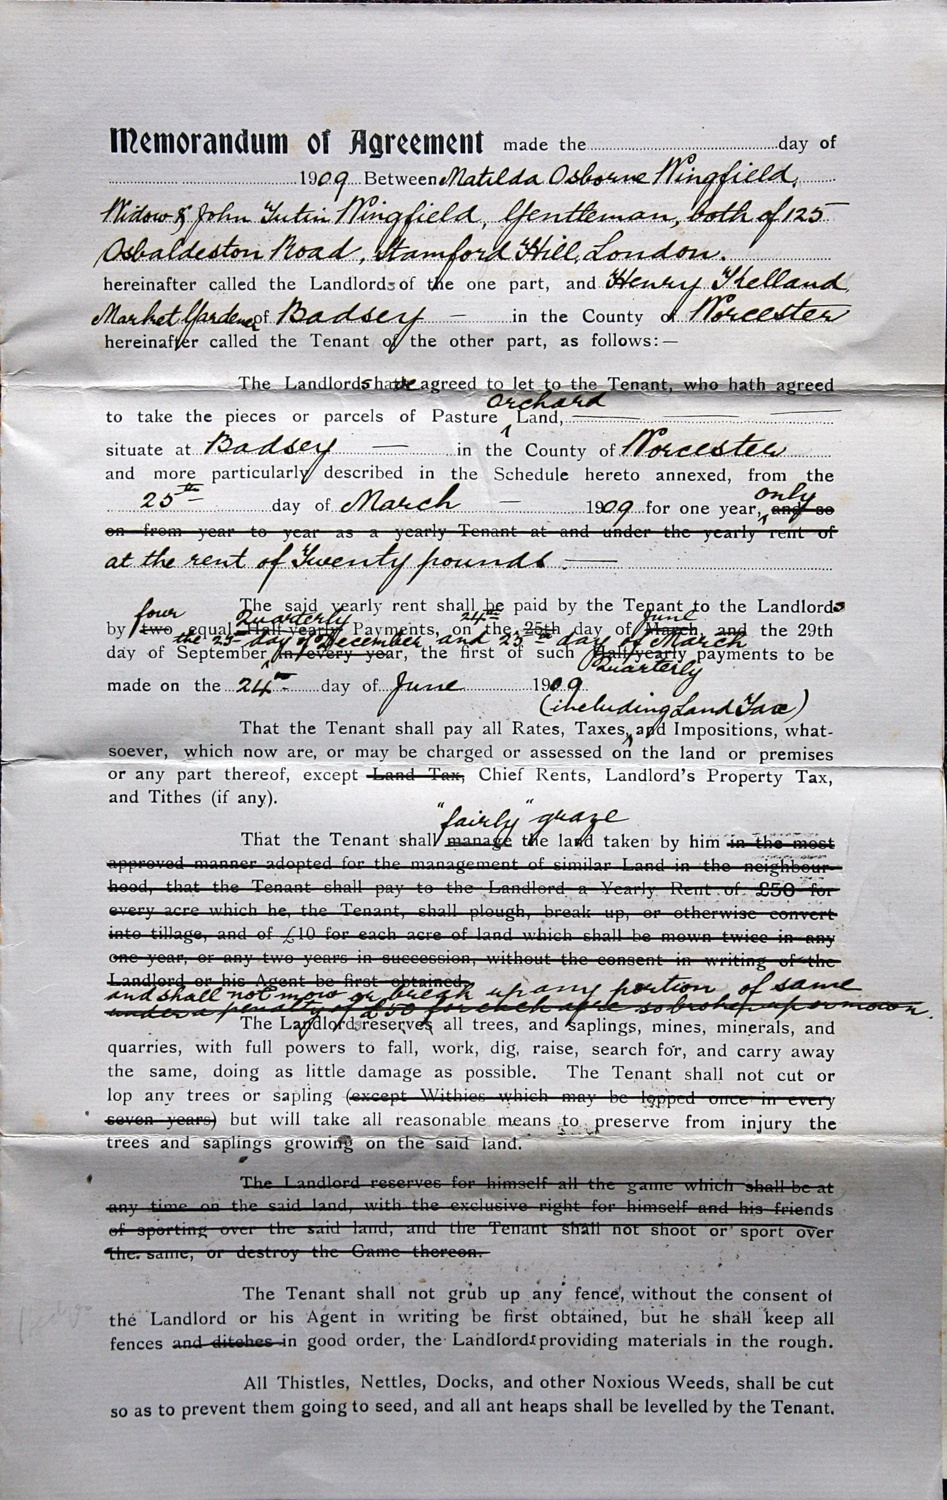 Memorandum of Agreement made the day of
1909 Between Matilda Osborne Wingfield,
Widow & John Tutin Wingfield, Gentleman, both of 125
Osbaldeston Road, Stamford Hill, London.
hereinafter called the Landlords of the one part, and Henry Kelland
Market Gardener of Badsey — in the County of Worcester
hereinafter called the Tenant of the other part, as follows:—
The Landlords have agreed to let to the Tenant, who hath agreed
orchard
to take the pieces or parcels of Pasture Land,
situate at Badsey — in the County of Worcester
and more particularly described in the Schedule hereto annexed, from the
only
25th day of March — 1909 for one year, and so
on from year to year as a yearly Tenant at and under the yearly rent of
at the rent of Twenty pounds —
The said yearly rent shall be paid by the Tenant to the Landlords
four Quarterly 24th June
by two equal Half-yearly Payments, on the 25th day of March, and the 29th
the 25 day of December and 25th day of March
day of September in every year, the first of such Half-yearly payments to be
Quarterly
made on the 24th day of June 1909
(including Land Tax)
That the Tenant shall pay all Rates, Taxes, and Impositions, what-
soever, which now are, or may be charged or assessed on the land or premises
or any part thereof, except Land Tax, Chief Rents, Landlord's Property Tax,
and Tithes (if any).
"fairly" graze
That the Tenant shall manage the land taken by him in the most
approved manner adopted for the management of similar Land in the neighbour-
hood, that the Tenant shall pay to the Landlord a Yearly Rent of £50 for
every acre which he, the Tenant, shall plough, break up, or otherwise convert
into tillage, and of £10 for each acre of land which shall be mown twice in any
one year, or any two years in succession, without the consent in writing of the
Landlord or his Agent be first obtained.
and shall not mow or break up any portion of same
under a penalty of £50 for each acre so broken up or mown.
The Landlord reserves all trees, and saplings, mines, minerals, and
quarries, with full powers to fall, work, dig, raise, search for, and carry away
the same, doing as little damage as possible. The Tenant shall not cut or
lop any trees or sapling (except Withies which may be lopped once in every
seven years) but will take all reasonable means to preserve from injury the
trees and saplings growing on the said land.
The Landlord reserves for himself all the game which shall be at
any time on the said land, with the exclusive right for himself and his friends
of sporting over the said land, and the Tenant shall not shoot or sport over
the same, or destroy the Game thereon.
The Tenant shall not grub up any fence, without the consent of
the Landlord or his Agent in writing be first obtained, but he shall keep all
fences and ditches in good order, the Landlords providing materials in the rough.
All Thistles, Nettles, Docks, and other Noxious Weeds, shall be cut
so as to prevent them going to seed, and all ant heaps shall be levelled by the Tenant.